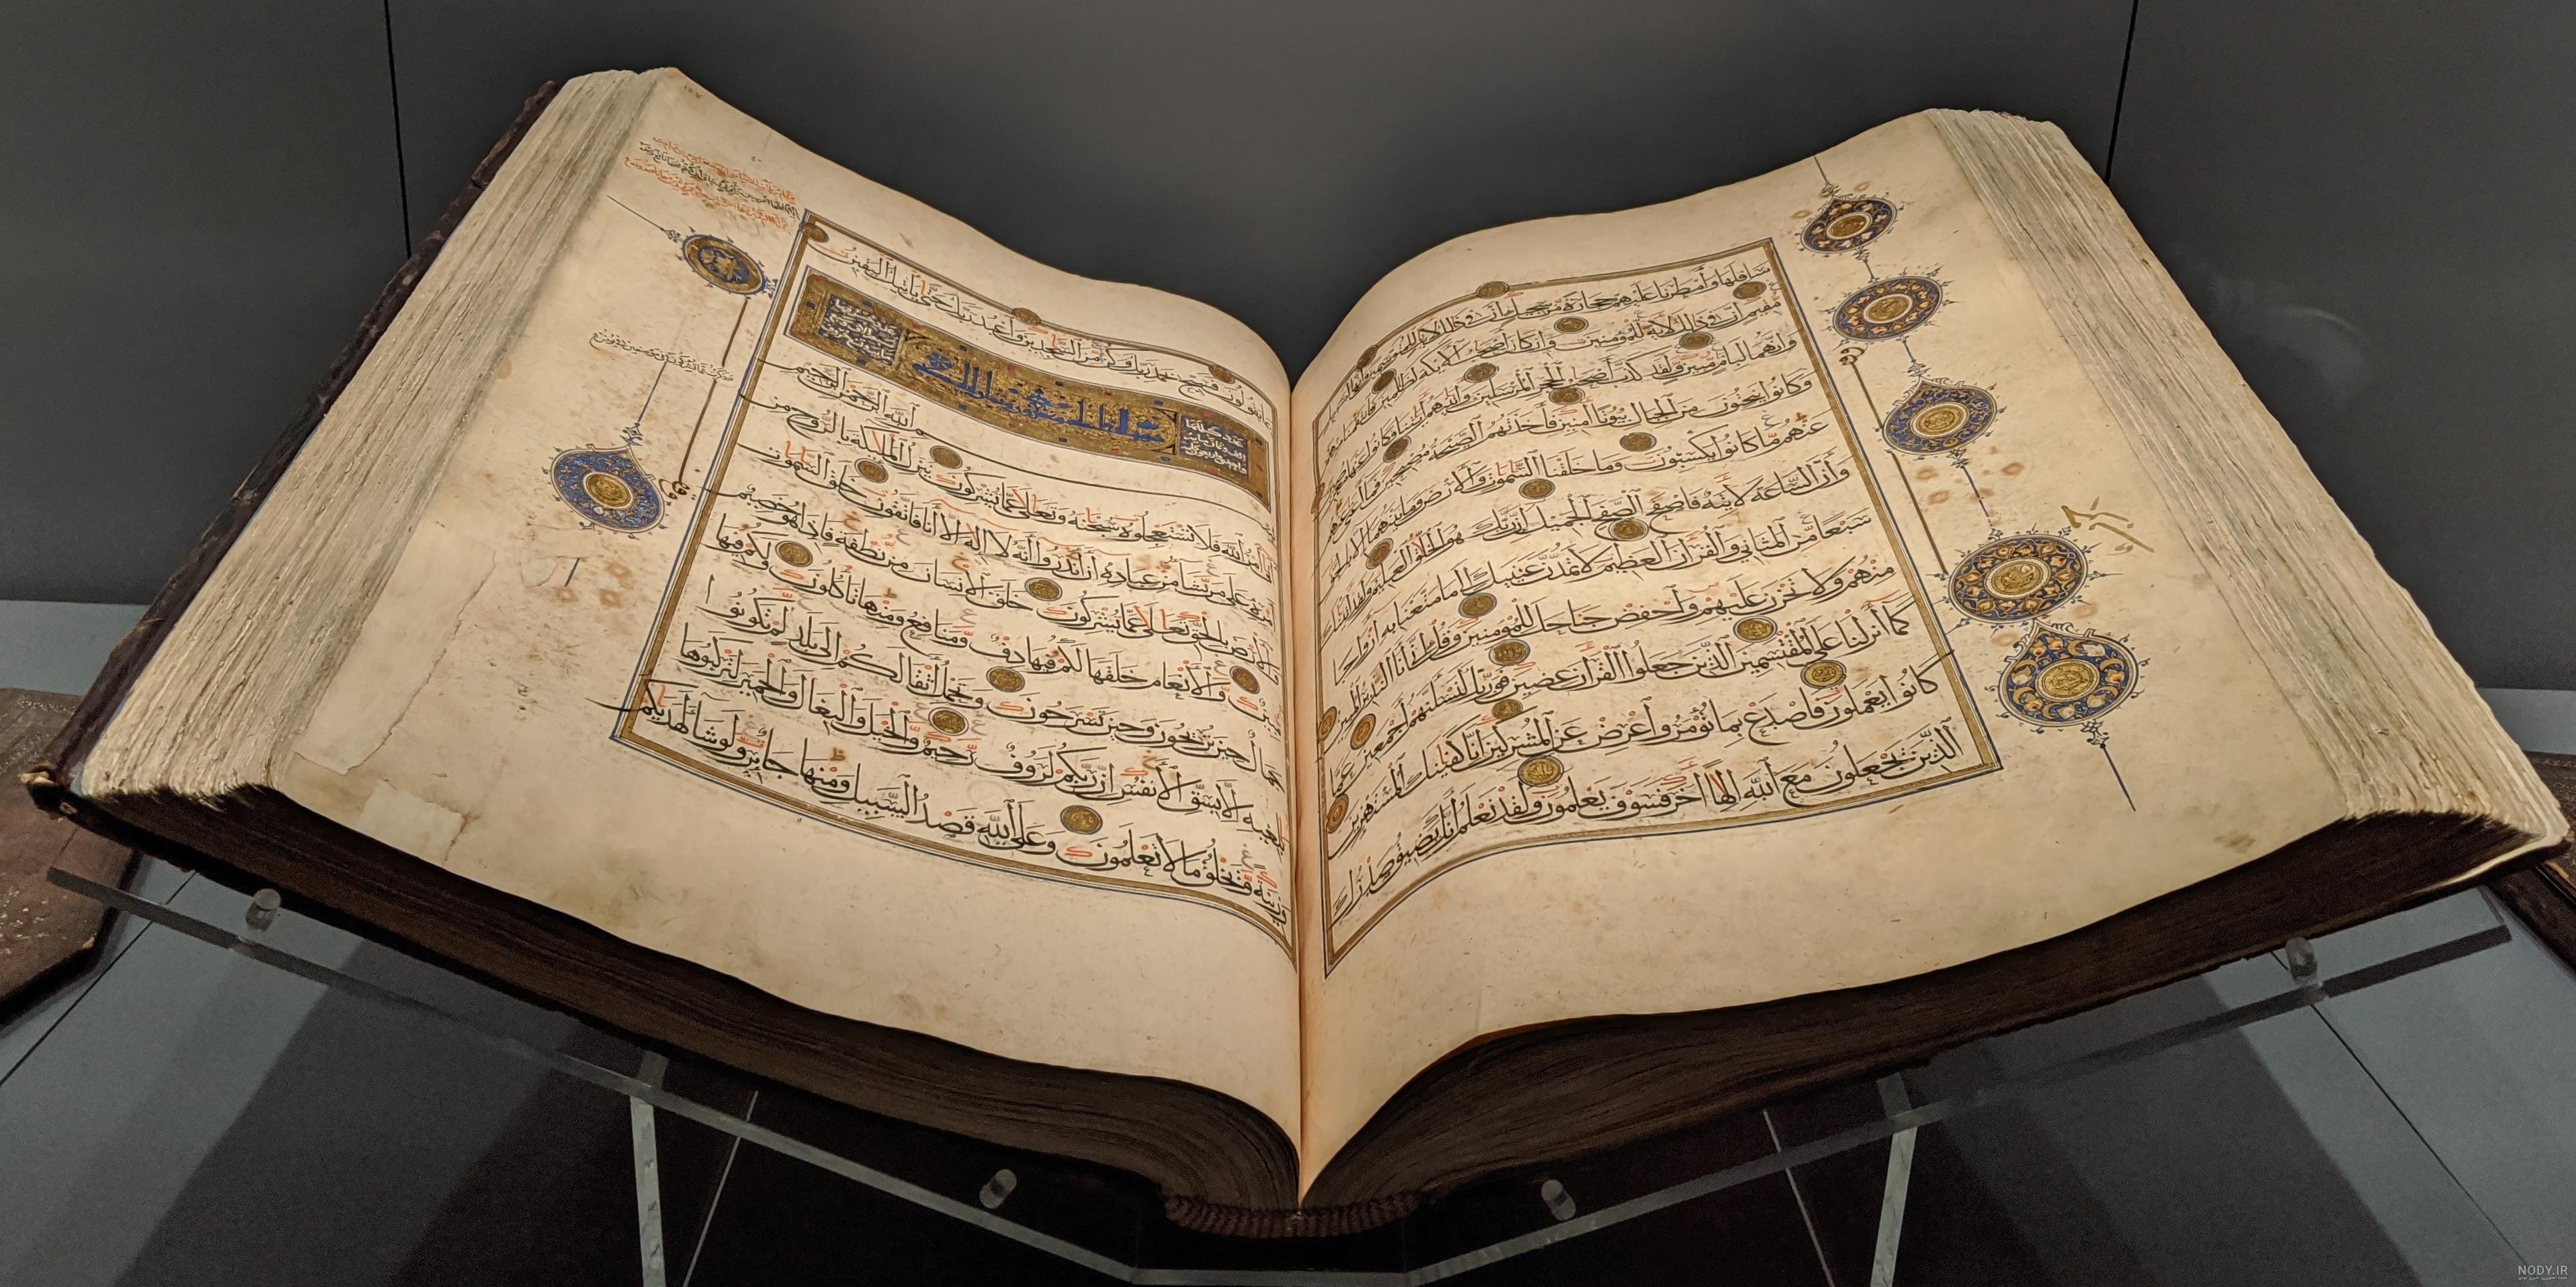 سافلها وأمطرنا عليهم حجارة من سجيل إن في ذلك لآيات للمتوسمين وإنها لبسبيل
مقيم إن في ذلك لآية للمؤمنين وإن كان أصحاب الأيكة لظالمين فانتقمنا منهم
وإنهما لبإمام مبين ولقد كذب أصحاب الحجر المرسلين وآتيناهم آياتنا فكانوا عنها معرضين
وكانوا ينحتون من الجبال بيوتا آمنين فأخذتهم الصيحة مصبحين فما أغنى
عنهم ما كانوا يكسبون وما خلقنا السموات والأرض وما بينهما إلا بالحق
وإن الساعة لآتية فاصفح الصفح الجميل إن ربك هو الخلاق العليم ولقد آتيناك
سبعا من المثاني والقرآن العظيم لا تمدن عينيك إلى ما متعنا به أزواجا
منهم ولا تحزن عليهم واخفض جناحك للمؤمنين وقل إني أنا النذير المبين
كما أنزلنا على المقتسمين الذين جعلوا القرآن عضين فوربك لنسئلنهم أجمعين عما
كانوا يعملون فاصدع بما تؤمر وأعرض عن المشركين إنا كفيناك المستهزئين
الذين يجعلون مع الله إلها آخر فسوف يعلمون ولقد نعلم أنك يضيق صدرك
بما يقولون فسبح بحمد ربك وكن من الساجدين واعبد ربك حتى يأتيك اليقين
بسم الله الرحمن الرحيم
أتى أمر الله فلا تستعجلوه سبحنه وتعلى عما يشركون ينزل الملئكة بالروح من
أمره على من يشاء من عباده أن أنذروا أنه لا إله إلا أنا فاتقون خلق السموت
والأرض بالحق تعلى عما يشركون خلق الإنسان من نطفة فإذا هو خصيم
مبين والأنعام خلقها لكم فيها دفء ومنافع ومنها تأكلون ولكم فيها
جمال حين تريحون وحين تسرحون وتحمل أثقالكم إلى بلد لم تكونوا
بالغيه إلا بشق الأنفس إن ربكم لرؤف رحيم والخيل والبغال والحمير لتركبوها
وزينة ويخلق ما لا تعلمون وعلى الله قصد السبيل ومنها جائر ولو شاء لهديكم
NODY.IR